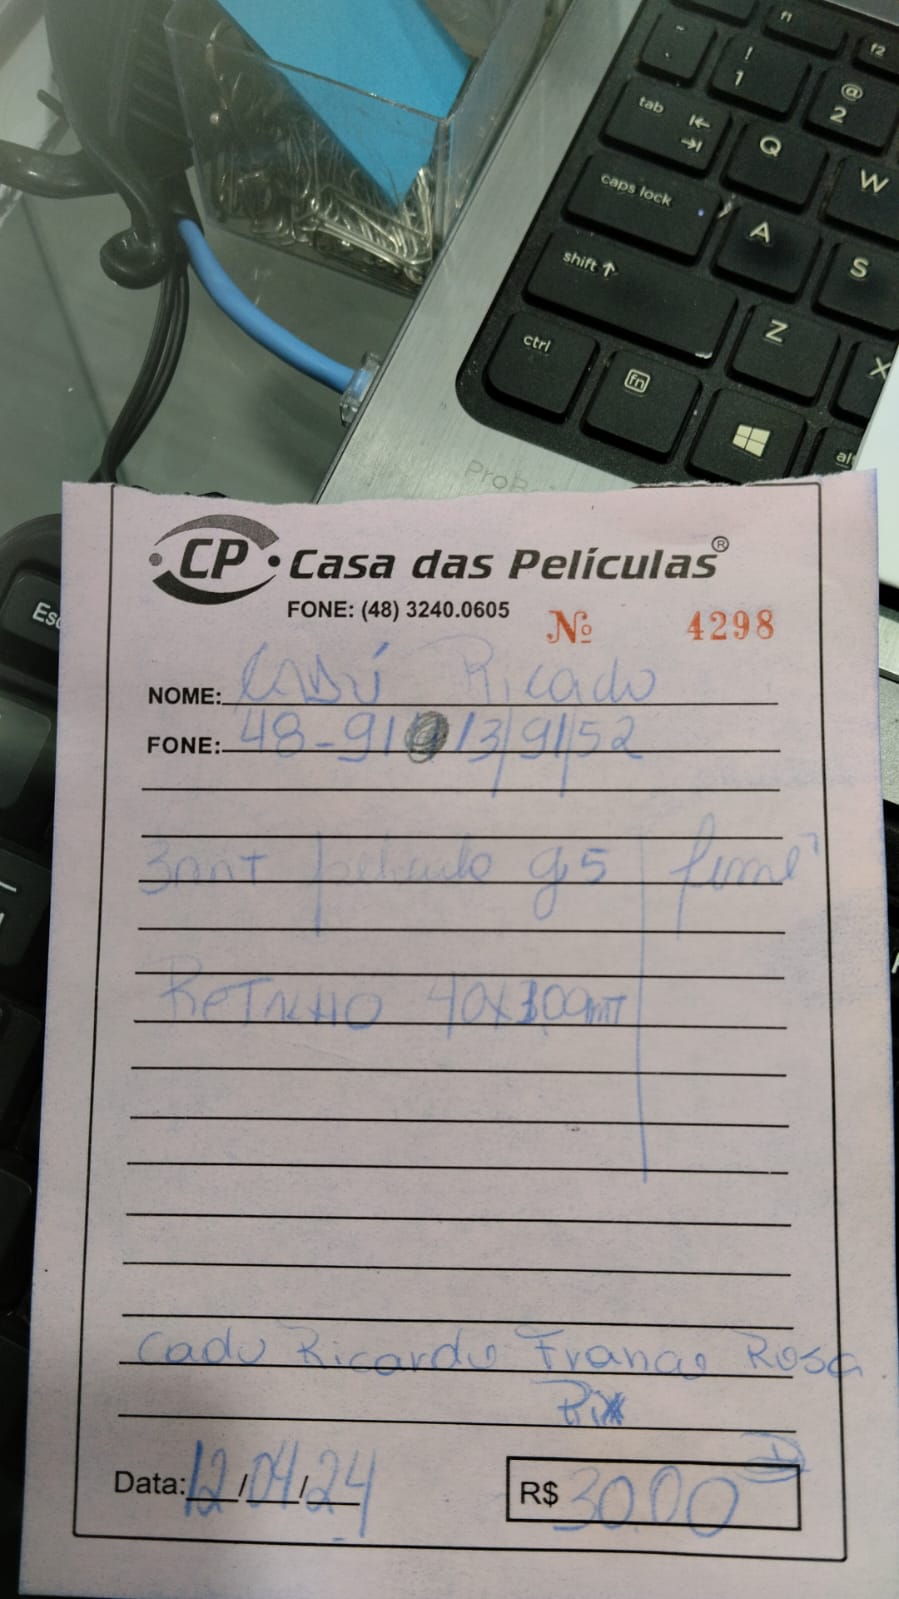 f1
f2
! 1
@ 2
tab
Q
W
caps lock
A
S
shift
Z
X
ctrl
fn
alt
ProB
Esc
CP Casa das Películas®
FONE: (48) 3240.0605
Nº 4298
NOME: Cadú Ricado
FONE: 48-91 13/91/52
3mt pelicula g5 fumê
RETALHO 40x3,00mt
Cadu Ricardo Franco Rosa
Pix
Data: 12/04/24 R$ 30,00